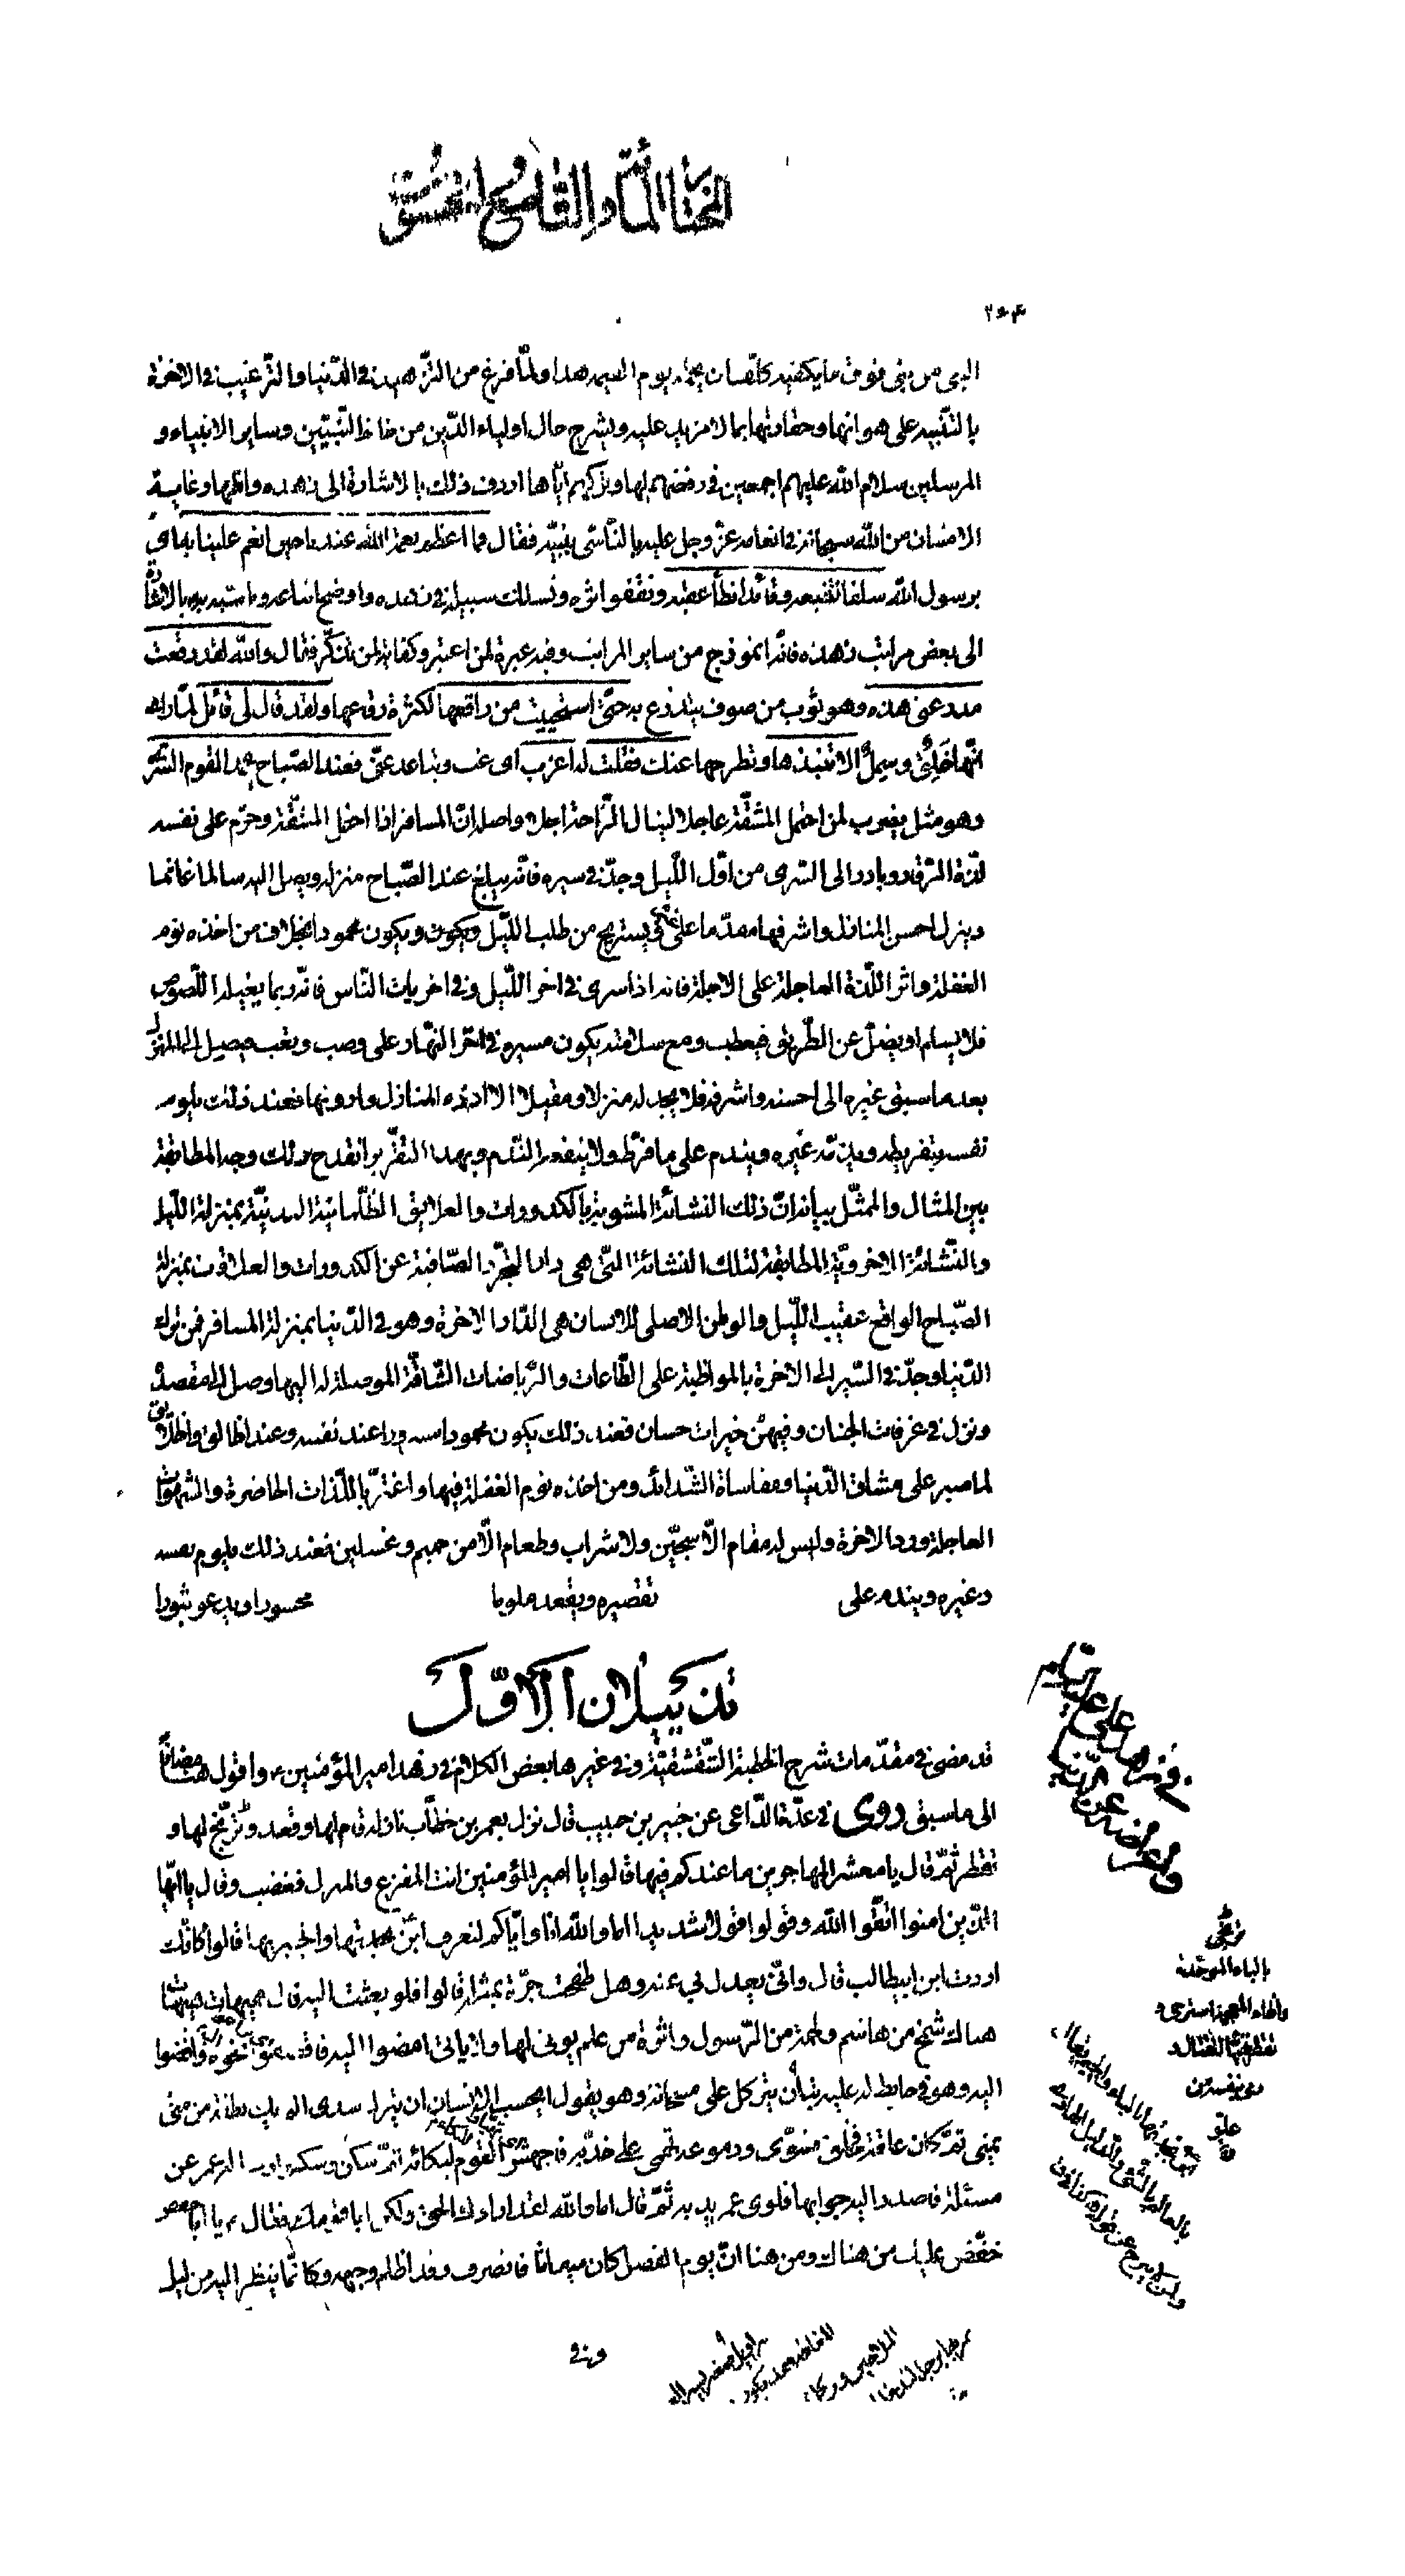 المختار المأة والتاسع والخمسون
٢٥٤
البنى من بنى فوق ما يكفيه كلّف ان يحمله يوم القيمة هذا ولمّا فرغ من التّزهيد في الدّنيا والتّرغيب في الاخرة
بالتّنبيه على هوانها وحقارتها بما لا مزيد عليه وبشرح حال اولياء الدّين من خاتم النّبيّين وساير الانبياء و
المرسلين سلام الله عليهم اجمعين في رفضهم لها وتركهم ايّاها اردف ذلك بالاشارة الى زهده وانّها وغاية
الامتنان من الله سبحانه في انعامه عزّ وجل عليه بالتّأسّى بنبيّه فقال فما اعظم نعمة الله عندنا حين انعم علينا به اى
برسول الله سلفا نتّبعه وقائدا نطأ عقبه ونقفو اثره ونسلك سبيله في زهده واوضح اتباعه وتأسّيه به بالاشارة
الى بعض مراتب زهده فانّه انموذج من ساير المراتب وفيه عبرة لمن اعتبر وكفاية لمن تذكّر فقال والله لقد رقعت
مدرعتى هذه وهو ثوب من صوف يتدرّع به حتّى استحييت من راقعها لكثرة رقعها ولقد قال لى قائل لمّا راى
انّها خلق وسمل الا تنبذها وتطرحها عنك فقلت له اعزب اى غب وتباعد عنّى فعند الصّباح يحمد القوم السّرى
وهو مثل يضرب لمن احتمل المشقّة عاجلا لينال الرّاحة اجلا واصله انّ المسافر اذا احتمل المشقّة وحرّم على نفسه
لذّة الرّقاد وبادر الى السّرى من اوّل اللّيل وجدّ في سيره فانّه يبلغ عند الصّباح منزله ويصل اليه سالما غانما
وينزل احسن المنازل واشرفها مقدّما على غيره يستريح من طلب اللّيل ويكون محمودا بخلاف من اخذه نوم
الغفلة واثر اللّذة العاجلة على الاجلة فانه اذا سرى في اخر اللّيل وفي اخريات النّاس فانّه ربما يغيله اللّصوص
فلا يسلم او يضلّ عن الطّريق فيعطب ومع سلامته يكون مسيره في اخر النّهار على وصب وتعب فيصل الى المنزل
بعد ما سبق غيره الى احسنه واشرفه فلا يجد له منزلا ومقيلا الا اردء المنازل وادونها فعند ذلك يلوم
نفسه بتفريطه ويذمّه غيره ويندم على ما فرّط ولا ينفعه النّدم وبهذا التقرير انقدح وجه المطابقة
بين المثال والممثّل بيانه انّ ذلك النشأة المشوبة بالكدورات والعلايق الظّلمانيّة البدنيّة بمنزلة اللّيل
والنّشأة الاخرويّة المطابقة لتلك النشأة الّتى هى دار التجرّد الصّافية عن الكدورات والعلاقات بمنزلة
الصّباح الواقع عقيب اللّيل والوطن الاصلى للانسان هى الدّار الاخرة وهو في الدّنيا بمنزلة المسافر فمن ترك
الدّنيا وجدّ في السّير الى الاخرة بالمواظبة على الطّاعات والرّياضات الشّاقّة الموصلة له اليها وصل الى مقصده
ونزل في غرفات الجنان وفيهنّ خيرات حسان فعند ذلك يكون محمودا مسرورا عند نفسه وعند الخالق والخلايق
لما صبر على مشاق الدّنيا ومقاساة الشّدائد ومن اخذه نوم الغفلة فيها واغترّ باللّذات الحاضرة والشّهوات
العاجلة ورد الاخرة وليس له مقام الّا سجّين ولا شراب وطعام الّا من حميم وغسلين فعند ذلك يلوم نفسه
وغيره ويندم على تقصيره ويقعد ملوما محسورا ويدعو ثبورا
تذييلان الاوّل
قد مضى في مقدّمات شرح الخطبة الشّقشقيّة وفي غيرها بعض الكلام في زهد امير المؤمنين واقول هنا مضافا
الى ما سبق روى في عدّة الدّاعى عن جبير بن حبيب قال نزل بعمر بن خطّاب نازلة قام لها وقعد وترنّح لها و
تقطر ثمّ قال يا معشر المهاجرين ما عندكم فيها قالوا يا امير المؤمنين انت المفزع والمنزل فغضب وقال يا ايّها
الّذين امنوا اتّقوا الله وقولوا قولا سديدا اما والله انا وايّاكم لنعرف ابن بجدتها والخبير بها قالوا كانّك
اردت ابن ابيطالب قال وانّى يعدل بى عنه وهل طفحت حرّة بمثله قالوا فلو بعثت اليه قال هيهات هيهات
هناك شمخ من هاشم ولحمة من الرّسول واثرة من علم يوتى لها ولا ياتى امضوا اليه نحوه وافضوا
اليه وهو في حايط له عليه تبّان يتركّل على مسحاته وهو يقول ايحسب الانسان ان يترك سدى الم يك نطفة من منى
يمنى ثمّ كان علقة فخلق فسوّى ودموعه تهمى على خدّيه فاجهش القوم لبكائه ثمّ سكن وسكنوا وسأله عمر عن
مسئلته فاصدر اليه جوابها فلوى عمر يديه ثمّ قال اما والله لقد ارادك الحقّ ولكن ابى قومك فقال يا ابا حفص
خفّض عليك من هناك ومن هنا انّ يوم الفصل كان ميقاتا فانصرف وقد اظلم وجهه وكانّما ينظر اليه من ليل
وفي
في زهد على عليه السّلام
واعراضه عن الدّنيا
بالباء الموحّدة